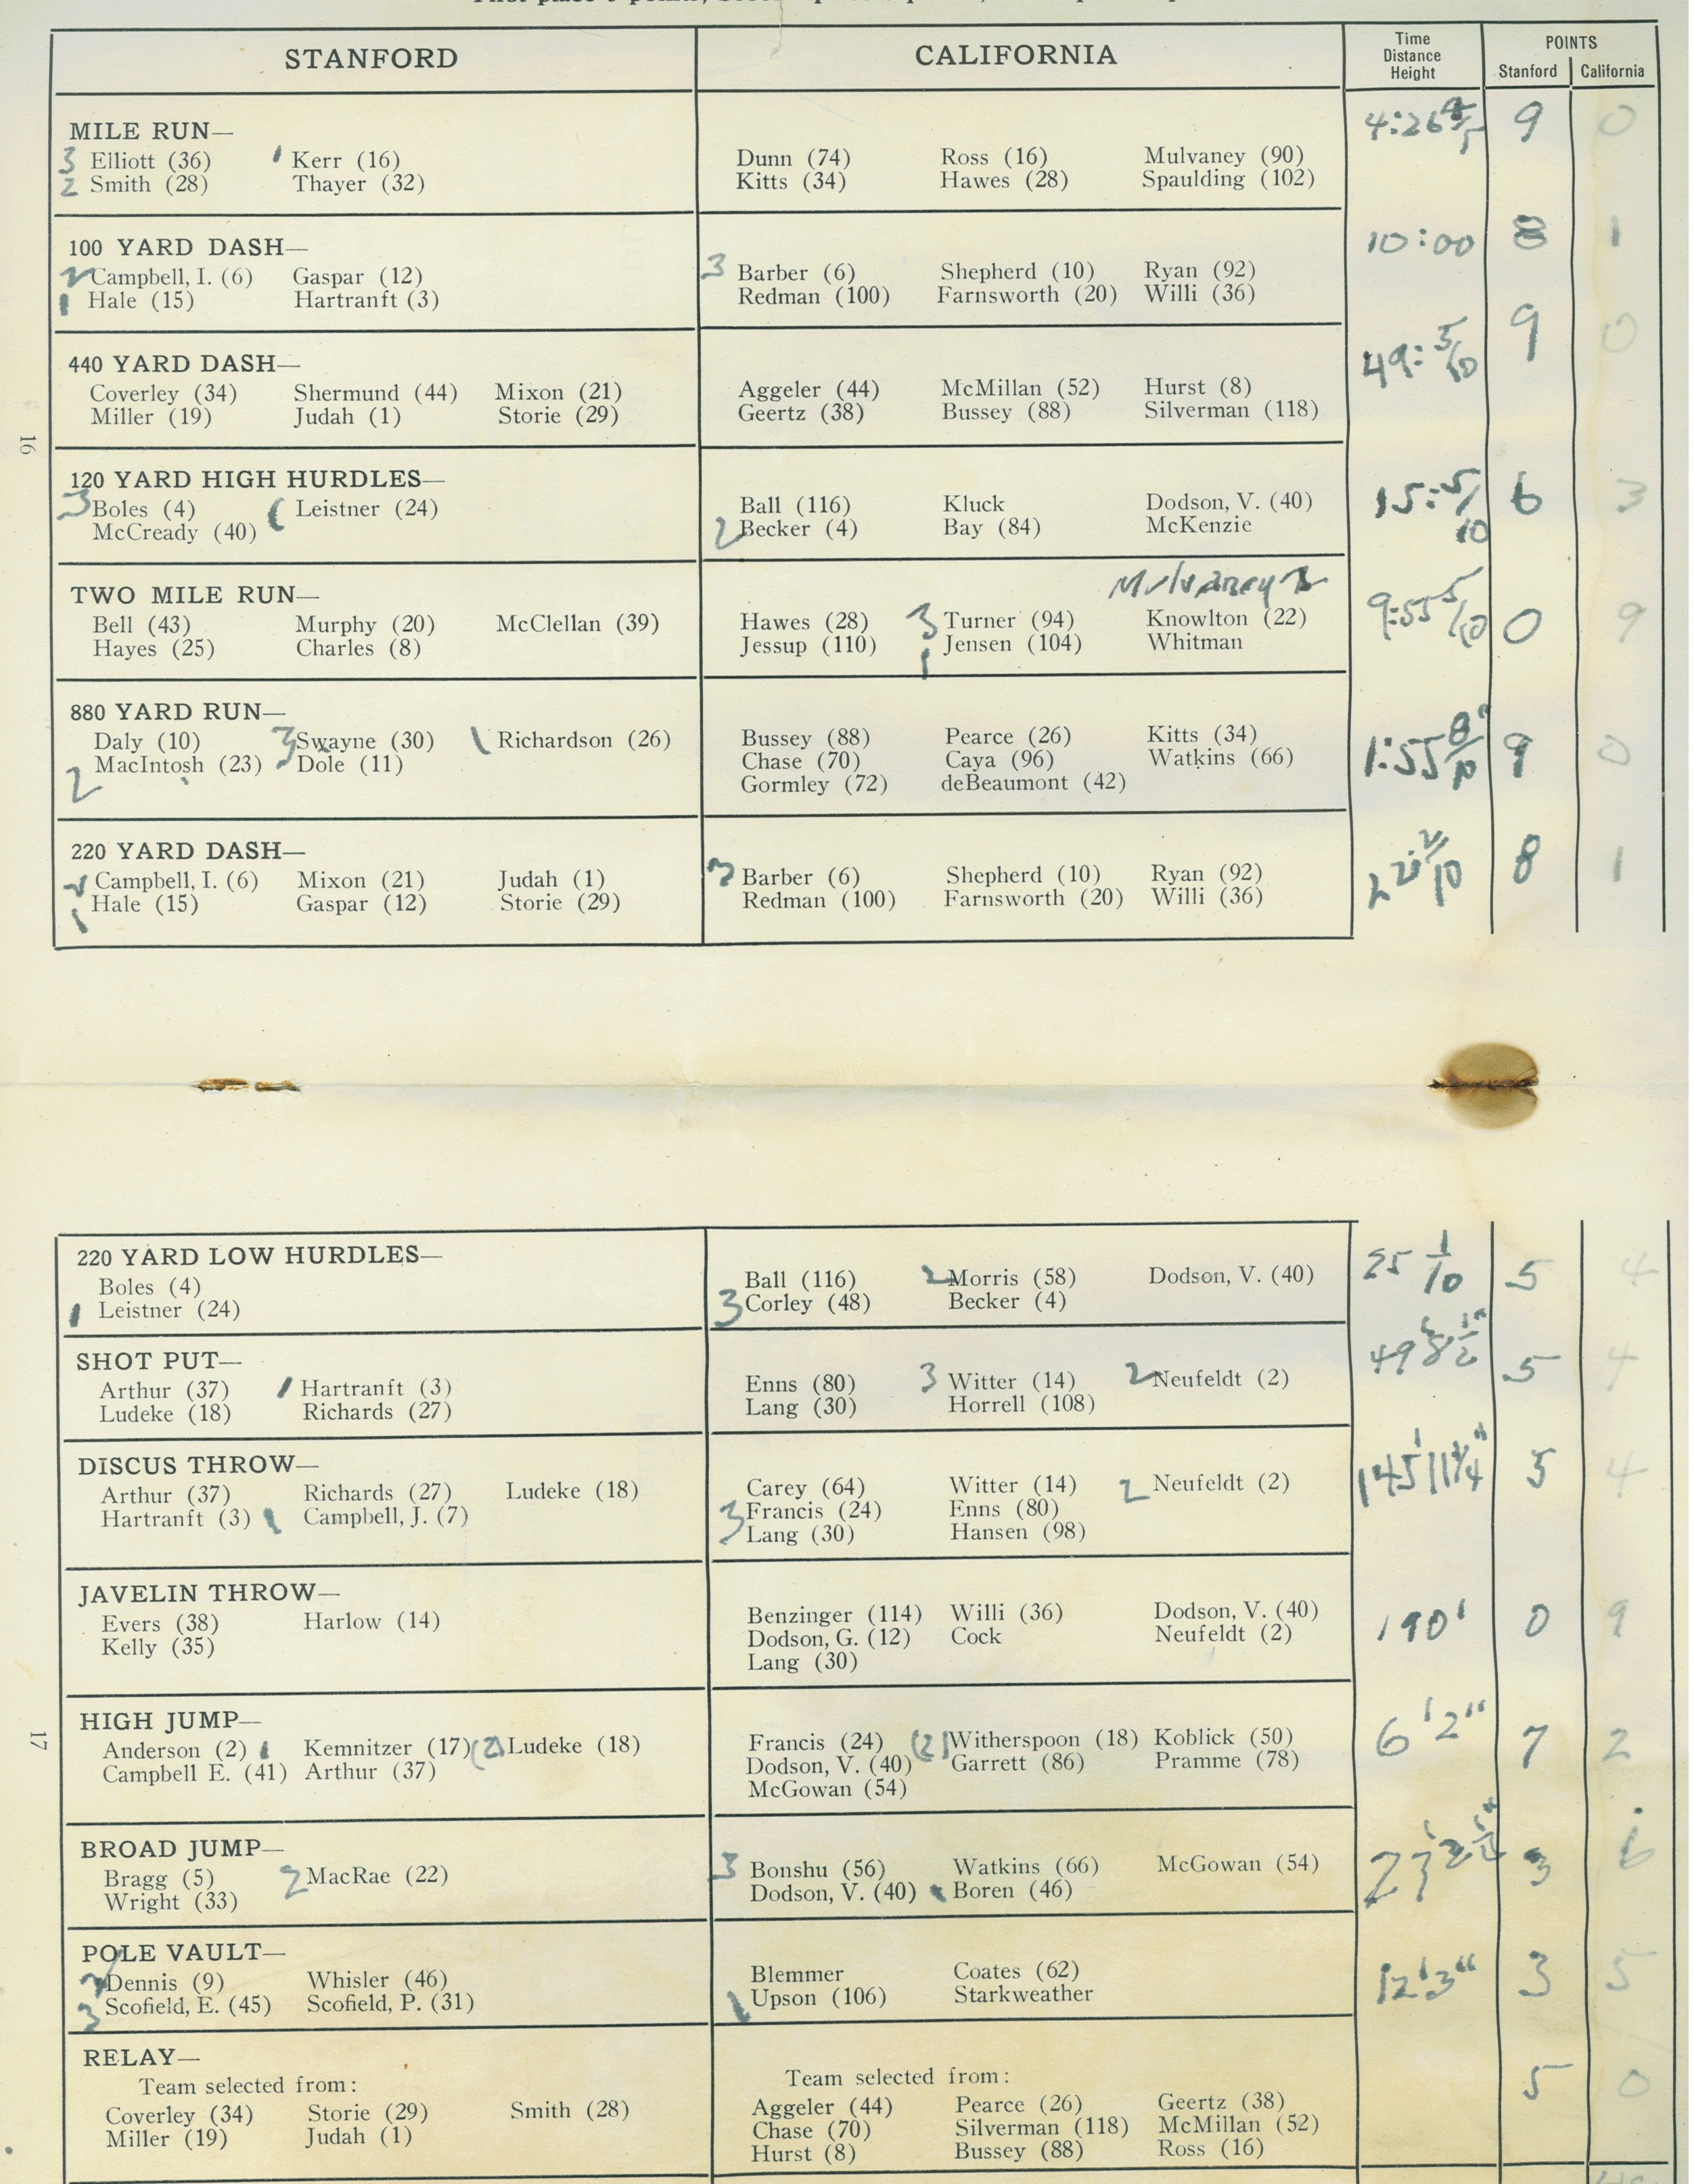 STANFORD CALIFORNIA Time Distance Height POINTS Stanford California
MILE RUN— 4:26 4/5 9 0
3 Elliott (36) 1 Kerr (16) Dunn (74) Ross (16) Mulvaney (90)
2 Smith (28) Thayer (32) Kitts (34) Hawes (28) Spaulding (102)
100 YARD DASH— 10:00 8 1
2 Campbell, I. (6) Gaspar (12) 3 Barber (6) Shepherd (10) Ryan (92)
1 Hale (15) Hartranft (3) Redman (100) Farnsworth (20) Willi (36)
440 YARD DASH— 49: 5/10 9 0
Coverley (34) Shermund (44) Mixon (21) Aggeler (44) McMillan (52) Hurst (8)
Miller (19) Judah (1) Storie (29) Geertz (38) Bussey (88) Silverman (118)
16
120 YARD HIGH HURDLES— 15: 5/10 6 3
3 Boles (4) 1 Leistner (24) Ball (116) Kluck Dodson, V. (40)
McCready (40) 2 Becker (4) Bay (84) McKenzie
TWO MILE RUN— Mulvaney 2 9:55 5/10 0 9
Bell (43) Murphy (20) McClellan (39) Hawes (28) 3 Turner (94) Knowlton (22)
Hayes (25) Charles (8) Jessup (110) 1 Jensen (104) Whitman
880 YARD RUN— 1:55 8/10 9 0
Daly (10) 3 Swayne (30) 1 Richardson (26) Bussey (88) Pearce (26) Kitts (34)
2 MacIntosh (23) Dole (11) Chase (70) Caya (96) Watkins (66)
Gormley (72) deBeaumont (42)
220 YARD DASH— 22: 2/10 8 1
2 Campbell, I. (6) Mixon (21) Judah (1) 3 Barber (6) Shepherd (10) Ryan (92)
1 Hale (15) Gaspar (12) Storie (29) Redman (100) Farnsworth (20) Willi (36)
220 YARD LOW HURDLES— 25 1/10 5 4
Boles (4) Ball (116) 2 Morris (58) Dodson, V. (40)
1 Leistner (24) 3 Corley (48) Becker (4)
SHOT PUT— 49' 8 1/2" 5 4
Arthur (37) 1 Hartranft (3) Enns (80) 3 Witter (14) 2 Neufeldt (2)
Ludeke (18) Richards (27) Lang (30) Horrell (108)
DISCUS THROW— 145' 11 3/4" 5 4
Arthur (37) Richards (27) Ludeke (18) Carey (64) Witter (14) 2 Neufeldt (2)
Hartranft (3) 1 Campbell, J. (7) 3 Francis (24) Enns (80)
Lang (30) Hansen (98)
JAVELIN THROW— 190' 0 9
Evers (38) Harlow (14) Benzinger (114) Willi (36) Dodson, V. (40)
Kelly (35) Dodson, G. (12) Cock Neufeldt (2)
Lang (30)
17
HIGH JUMP— 6'2" 7 2
Anderson (2) 1 Kemnitzer (17) (2) Ludeke (18) Francis (24) (2) Witherspoon (18) Koblick (50)
Campbell E. (41) Arthur (37) Dodson, V. (40) Garrett (86) Pramme (78)
McGowan (54)
BROAD JUMP— 23' 2 1/2" 3 6
Bragg (5) 2 MacRae (22) 3 Bonshu (56) Watkins (66) McGowan (54)
Wright (33) Dodson, V. (40) 1 Boren (46)
POLE VAULT— 12'3" 3 5
2 Dennis (9) Whisler (46) Blemmer Coates (62)
3 Scofield, E. (45) Scofield, P. (31) 1 Upson (106) Starkweather
RELAY— 5 0
Team selected from: Team selected from:
Coverley (34) Storie (29) Smith (28) Aggeler (44) Pearce (26) Geertz (38)
Miller (19) Judah (1) Chase (70) Silverman (118) McMillan (52)
Hurst (8) Bussey (88) Ross (16)